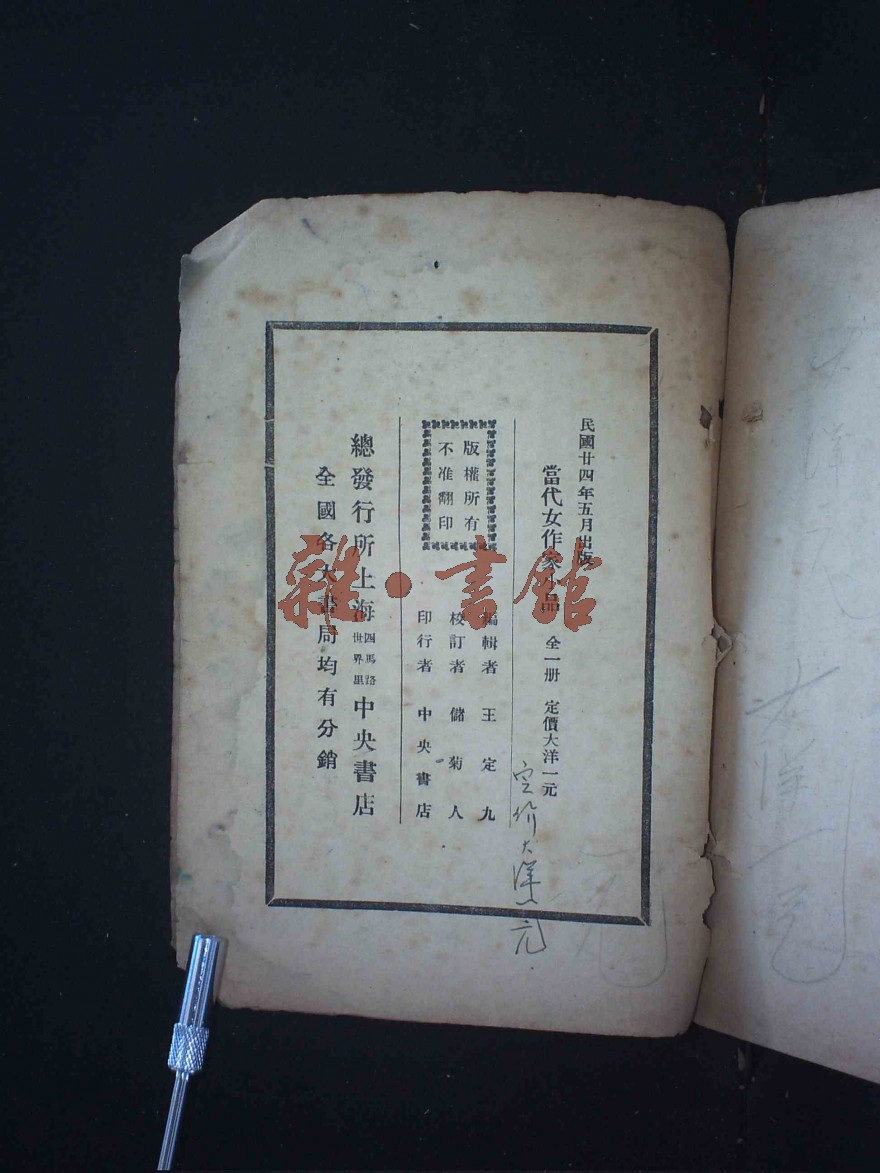 民國廿四年五月出版
當代女作家小品 全一册 定價大洋一元
定价大洋一元
版權所有
不准翻印
編輯者 王定九
校訂者 儲菊人
印行者 中央書店
總發行所上海四馬路世界里中央書店
全國各大書局均有分銷
雜·書館
大洋一元